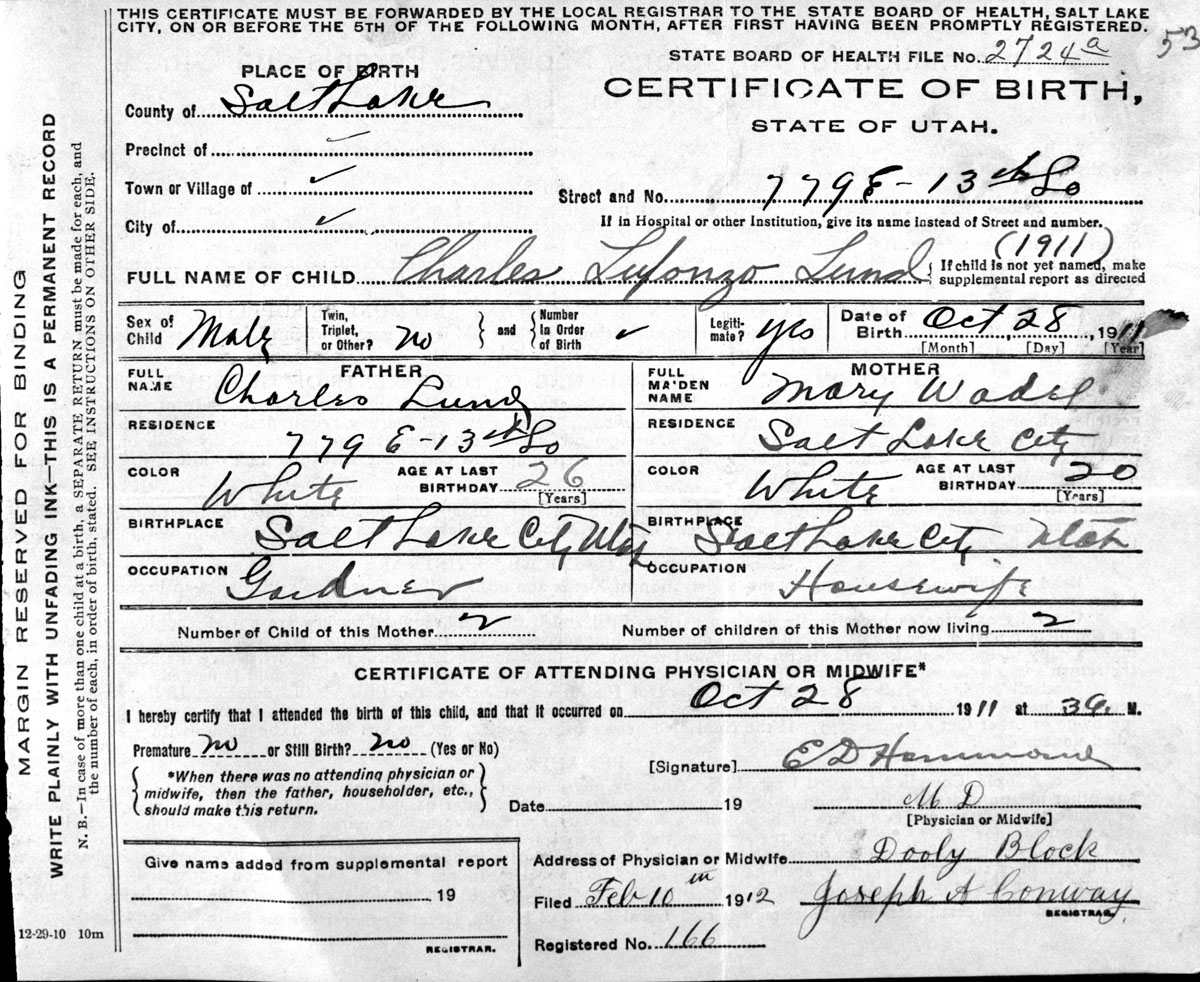 THIS CERTIFICATE MUST BE FORWARDED BY THE LOCAL REGISTRAR TO THE STATE BOARD OF HEALTH, SALT LAKE
CITY, ON OR BEFORE THE 5TH OF THE FOLLOWING MONTH, AFTER FIRST HAVING BEEN PROMPTLY REGISTERED.
53
STATE BOARD OF HEALTH FILE No. 2724a
PLACE OF BIRTH
CERTIFICATE OF BIRTH,
County of Salt Lake
STATE OF UTAH.
Precinct of ✓
Town or Village of ✓
Street and No. 779 E - 13th So
City of ✓
If in Hospital or other Institution, give its name instead of Street and number.
(1911)
FULL NAME OF CHILD Charles Lufonzo Lund { If child is not yet named, make
supplemental report as directed
Sex of Child Male
Twin, Triplet, or Other? No } and { Number in Order of Birth ✓
Legiti-mate? yes
Date of Birth Oct 28, 1911
[Month] [Day] [Year]
FATHER
FULL NAME Charles Lund
RESIDENCE 779 E - 13th So
COLOR White AGE AT LAST BIRTHDAY 26
[Years]
BIRTHPLACE Salt Lake City Utah
OCCUPATION Gardner
MOTHER
FULL MAIDEN NAME Mary Wadel
RESIDENCE Salt Lake City
COLOR White AGE AT LAST BIRTHDAY 20
[Years]
BIRTHPLACE Salt Lake City Utah
OCCUPATION Housewife
Number of Child of this Mother 2 Number of children of this Mother now living 2
CERTIFICATE OF ATTENDING PHYSICIAN OR MIDWIFE*
I hereby certify that I attended the birth of this child, and that it occurred on Oct 28 1911 at 3 a. M.
Premature No or Still Birth? No (Yes or No)
{ *When there was no attending physician or
midwife, then the father, householder, etc.,
should make this return. }
[Signature] E D Hammond
Date 19 M D
[Physician or Midwife]
Give name added from supplemental report
19
REGISTRAR.
Address of Physician or Midwife Dooly Block
Filed Feb 10 th 1912 Joseph A Conway
REGISTRAR.
Registered No. 166
12-29-10 10m
MARGIN RESERVED FOR BINDING
WRITE PLAINLY WITH UNFADING INK—THIS IS A PERMANENT RECORD
N. B.—In case of more than one child at a birth, a SEPARATE RETURN must be made for each, and
the number of each, in order of birth, stated. SEE INSTRUCTIONS ON OTHER SIDE.